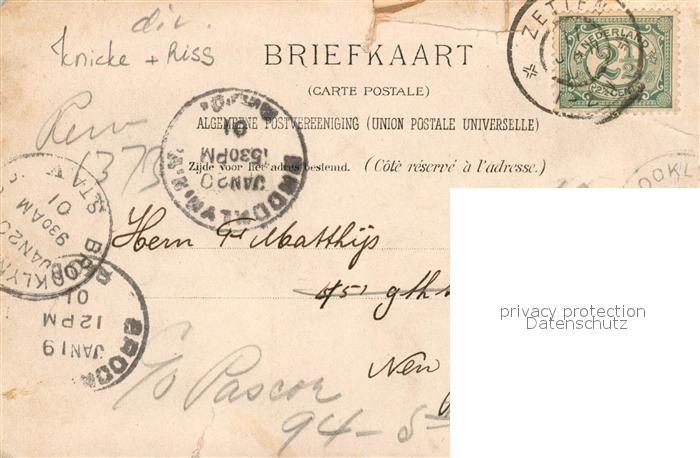 div.
Knicke + Riss
BRIEFKAART
(CARTE POSTALE)
ALGEMEENE POSTVEREENIGING (UNION POSTALE UNIVERSELLE)
Zijde voor het adres bestemd. (Côté réservé à l'adresse.)
ZETTEN
NEDERLAND
2½
CENT
1373
BROOKLYN, N.Y.
JAN 20
530PM
01
BROOKLYN
STA
JAN 20
930AM
01
BROOK
JAN 19
12PM
01
Herrn F Matthijs
451 9th
New
c/o Pascoe
94-5
privacy protection
Datenschutz